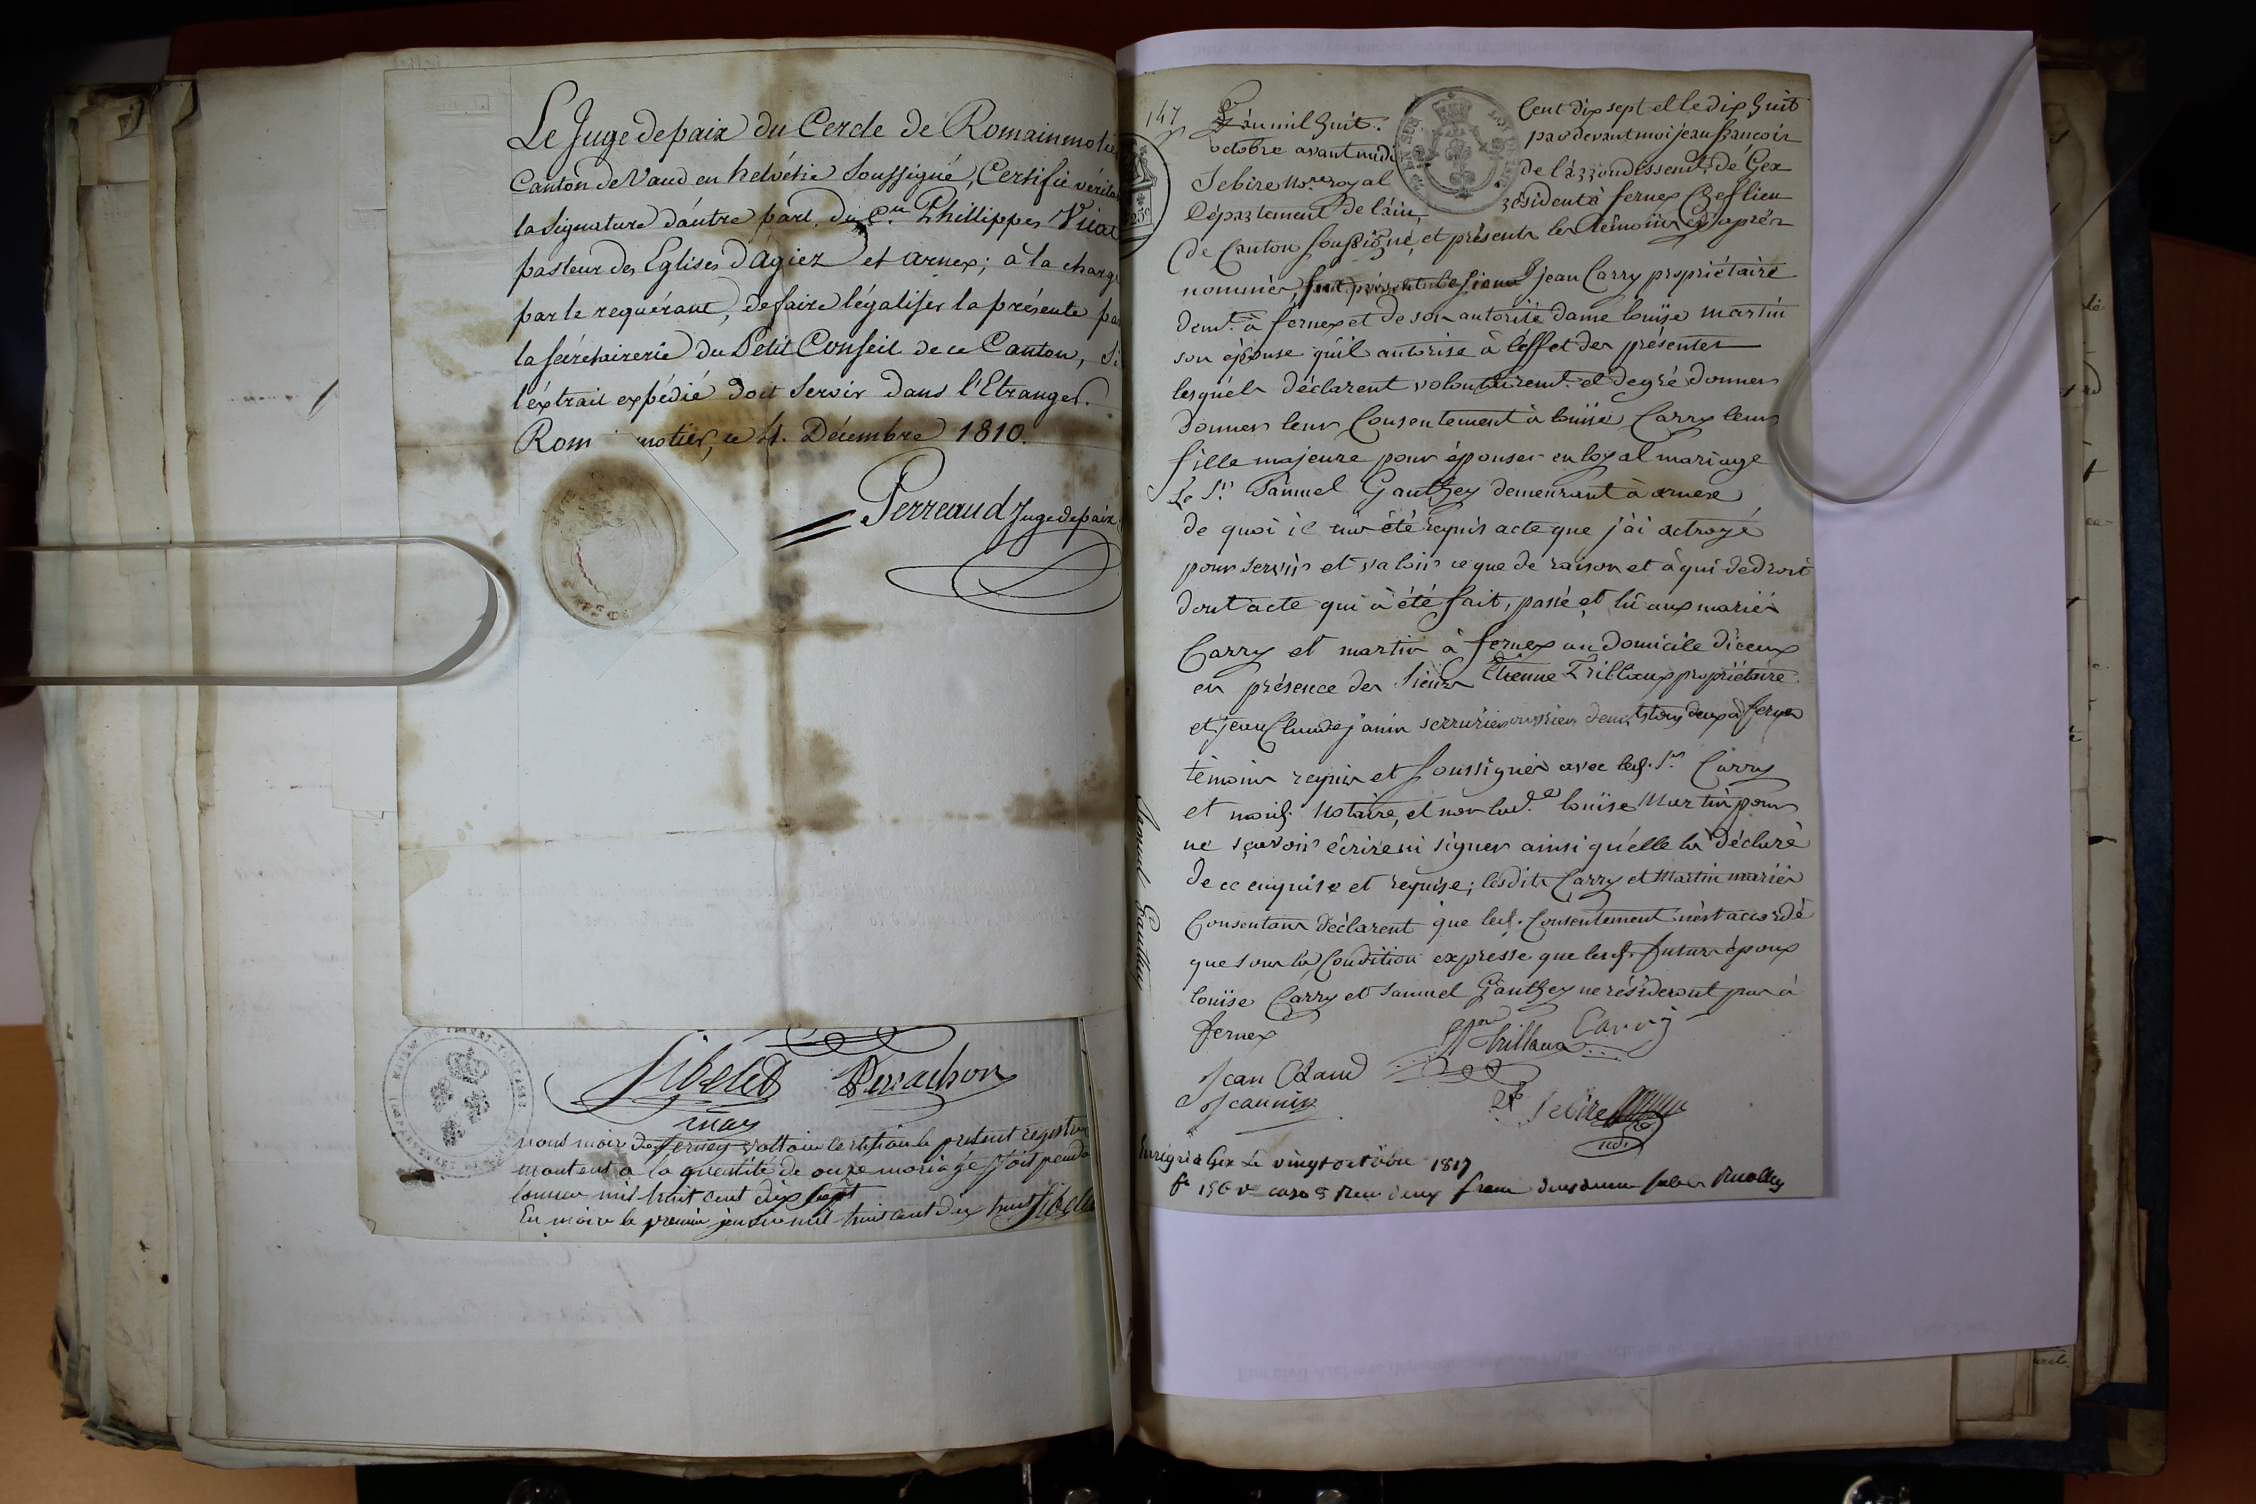 Le Juge de paix du Cercle de Romainmotie
Canton de Vaud en helvétie Soussigné, Certifie vérita
la signature d'autre part, du Cen. Phillippes Vica
pasteur des Eglises d'Agiez et arnex; à la charge
par le requérant, de faire légaliser la présente pa
la secrétairerie du Petit Conseil de ce Canton, Si
l'extrait expédié doit Servir dans l'Etranger.
Rom motier, ce 4. Décembre 1810.
Perreaud Juge de paix.
Sibelet Perrachon
may
nous maire de fernex voltaire certifions le présent registre
montent a la quentité de onze mariage fait penda
l'année mil huit cent dix sept
En mairie le premier jenvie mil huit cent dix huit Sibelet
147
L'an mil huit Cent dix sept et le dix huit
octobre avant midi par devant moi jean françois
Sebire Nore. royal de l'arrondissemt. de Gex
Département de l'ain, résident à fernex Chef lieu
de Canton Soussigné, et présents les témoins cy après
nommés, fut présent le sieur jean Carry propriétaire
demt. à fernex et de son autorité dame louise martin
son épouse qu'il autorise à l'effet des présentes
lesquels déclarent volontairemt. et de gré donner
donner leur Consentement à louise Carry leur
fille majeure pour épouser en loyal mariage
Le Sr. Samuel Gauthey demeurant à arnex
de quoi il m'a été requis acte que j'ai octroyé
pour servir et valoir ce que de raison et à qui de droit
dont acte qui a été fait, passé et lu aux mariés
Carry et martin à fernex au domicile d'iceux
en présence des Sieurs Etienne Trillaux propriétaire
et jean Claude janin serrurier demt. tous deux à fernex
témoins requis et soussignés avec led. Sr. Carry
et moid. Notaire, et non lad.e louise Martin pour
ne sçavoir écrire ni signer ainsi qu'elle l'a déclaré
de ce enquise et requise; lesdits Carry et Martin mariés
Consentans déclarent que led. Consentement n'est accordé
que sous la Condition expresse que lesd. futurs époux
louise Carry et Samuel Gauthey ne résideront pas à
fernex
Trillaux Carry
Jean Claud
Jeannin
Sebire
nore
Enrégré à Gex Le vingt octobre 1817
fo 156 vo case 5 Reçu deux francs
Samuel Gauthey